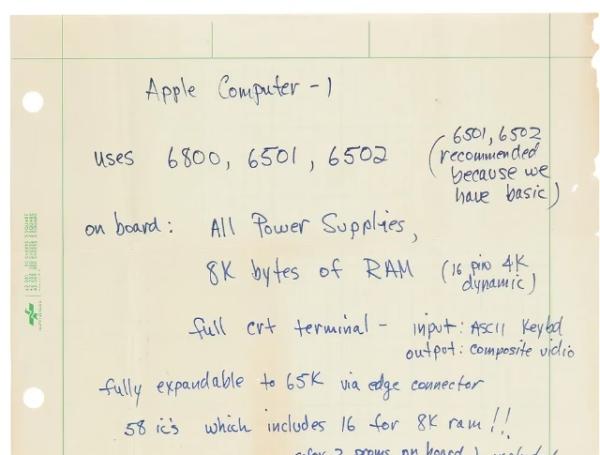 Apple Computer - 1
uses 6800, 6501, 6502
(6501, 6502
recommended
because we
have basic)
on board: All Power Supplies,
8K bytes of RAM (16 pin 4K
dynamic)
full crt terminal - input: ASCII Keybd
output: composite vidio
fully expandable to 65K via edge connector
58 ic's which includes 16 for 8K ram!!
on board